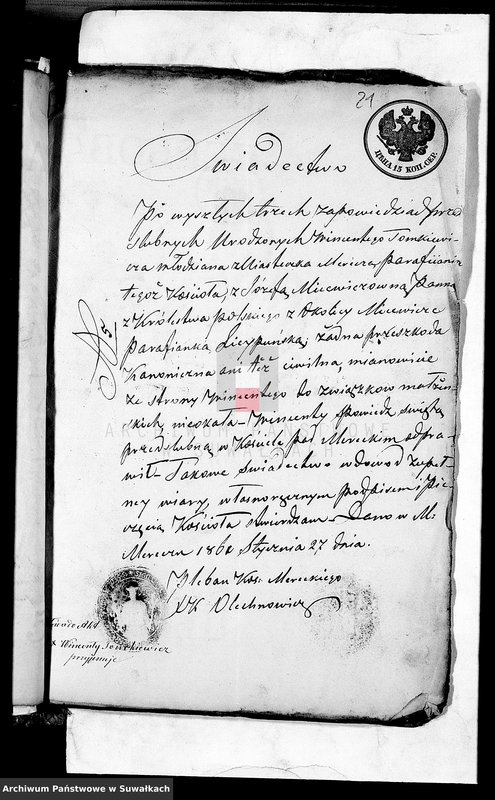 21
ЦѢНА 15 КОП. СЕР.
Swiadectwo
Po wyszłych trzech zapowiedziach przed
slubnych Urodzonych Wincentego Tomkiewi-
cza młodziana z Miasteczka Merecza, Parafiianin
tegoż Kościoła, z Józefą Micewiczowną Panną
z Królestwa polskiego z Okolicy Micewicze
Parafianką Leypuńską, żadna przeszkoda
Kanoniczna ani też ciwilna, mianowicie
ze strony Wincentego do związkow małżen-
skich nieokała - Wincenty spowiedz swiętą
przedslubną w Kosciele par Mereckim odpra-
wił - Takowe Swiadectwo w dowod zupeł-
ney wiary, własnoręcznym podpisem i Pie-
częcią Kościoła stwierdzam - Dano w M.
Mereczu 1861 Stycznia 27 dnia.
Pleban Koś. Mereckiego
XK Olechnowicz
№ 5
do Akt
X Wincenty
przyjmuje
ARCHIWUM PAŃSTWOWE
W SUWAŁKACH
Archiwum Państwowe w Suwałkach